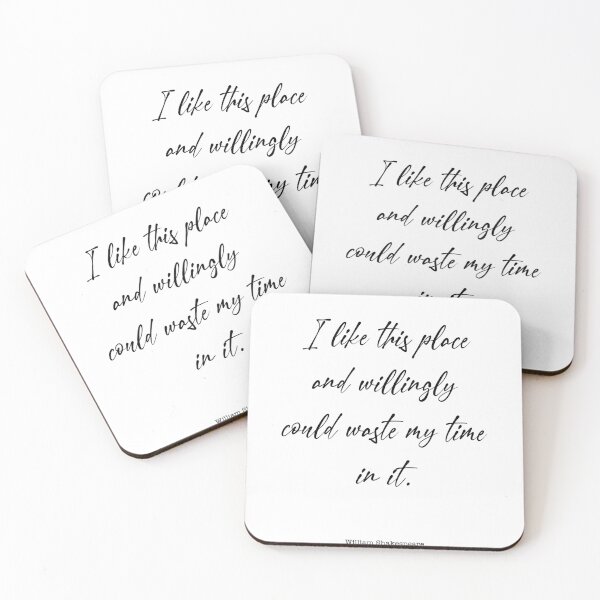 I like this place
and willingly
could waste my time
I like this place
and willingly
could waste my time
in it.
I like this place
and willingly
could waste my time
in it.
I like this place
and willingly
could waste my time
in it.
William Shakespeare